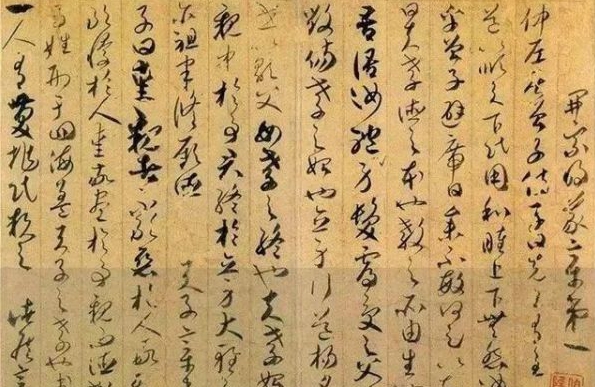 開宗明義章第一
仲尼居曾子侍子曰先王有至
道以順天下民用和睦上下無怨
乎曾子避席曰參不敏何足以
曰夫孝德之本也教之所由生
吾語汝身體髮膚受之父
毀傷孝之始也立身行道揚名
世以顯父母孝之終也夫孝始
親中於事君終於立身大雅
尔祖聿脩厥德 天子章
子曰愛親者不敢惡於人敬
慢於人愛敬盡於事親而德
百姓刑于四海蓋天子之孝也甫
一人有慶兆民賴之 諸侯章